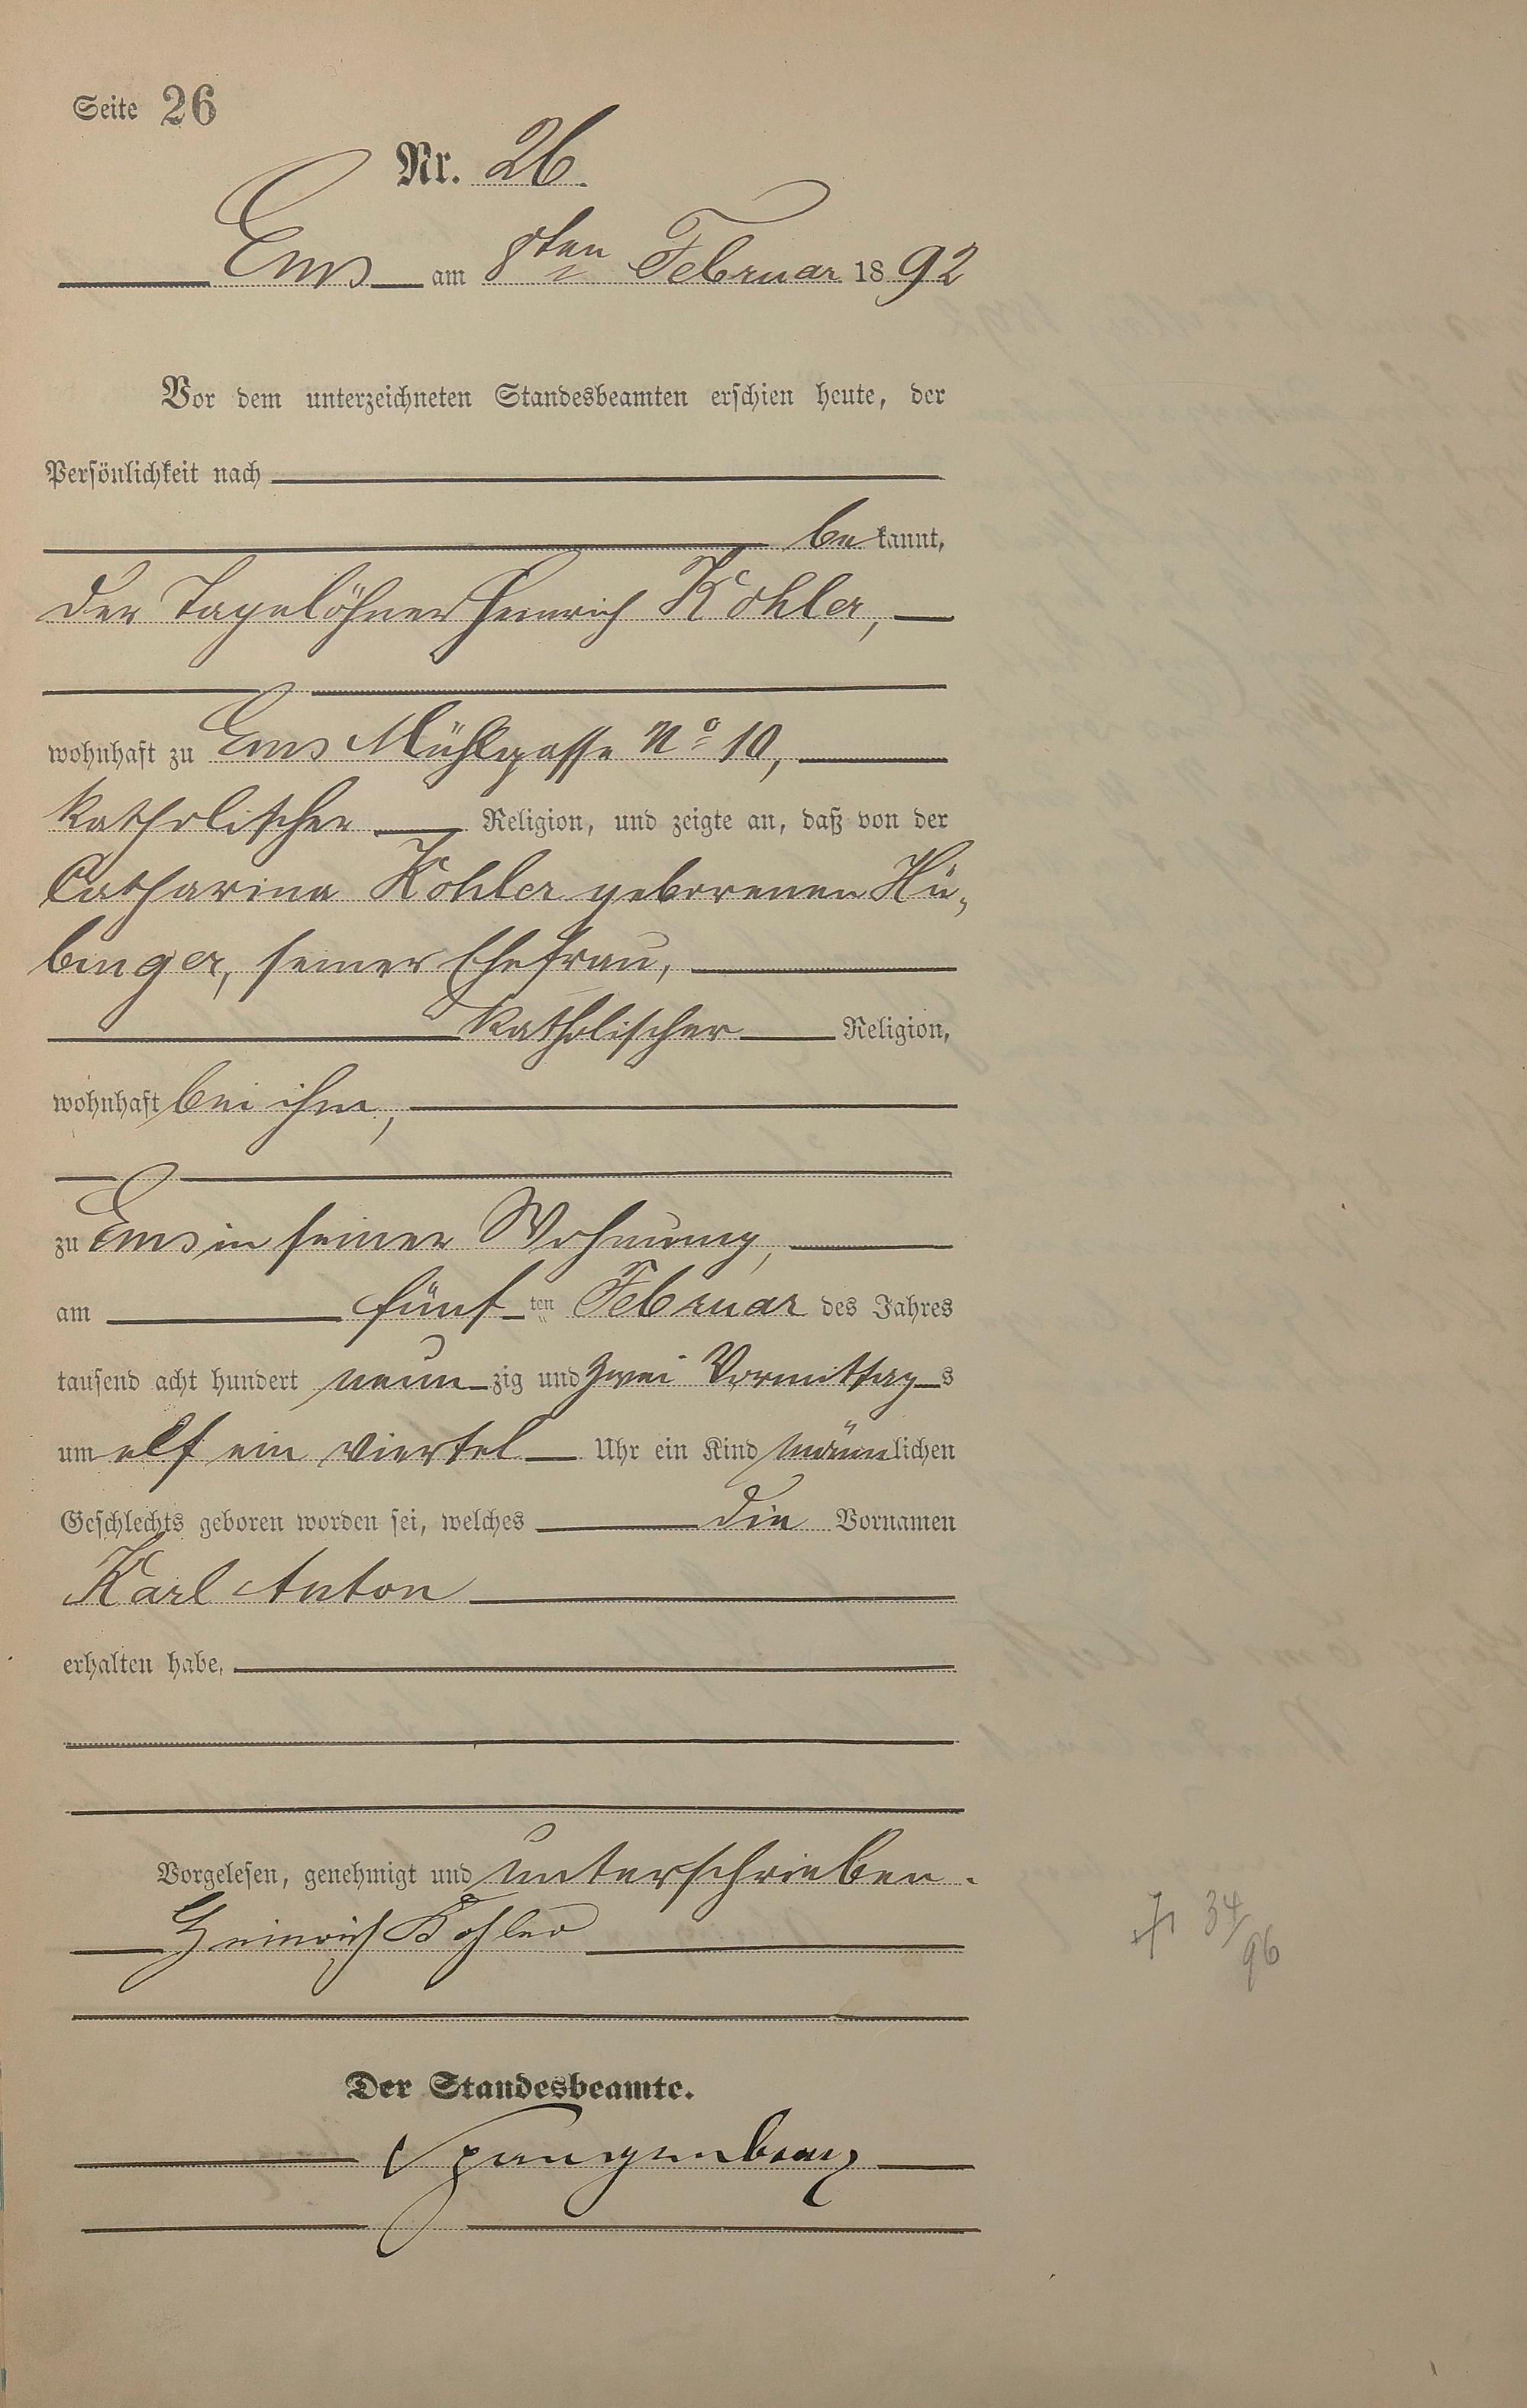 Seite 26
Nr. 26.
Ems am 8ten Februar 1892
Vor dem unterzeichneten Standesbeamten erschien heute, der
Persönlichkeit nach
bekannt,
der Tagelöhner Heinrich Kohler,
wohnhaft zu Ems Mühlgasse No 10,
katholischer Religion, und zeigte an, daß von der
Catharina Kohler geborenen Hü-
binger, seiner Ehefrau,
katholischer Religion,
wohnhaft bei ihm,
zu Ems in seiner Wohnung,
am fünften Februar des Jahres
tausend acht hundert neunzig und zwei Vormittags
um elf ein viertel Uhr ein Kind männlichen
Geschlechts geboren worden sei, welches die Vornamen
Karl Anton
erhalten habe.
Vorgelesen, genehmigt und unterschrieben.
Heinrich Kohler
† 34/96
Der Standesbeamte.
Spangenberg